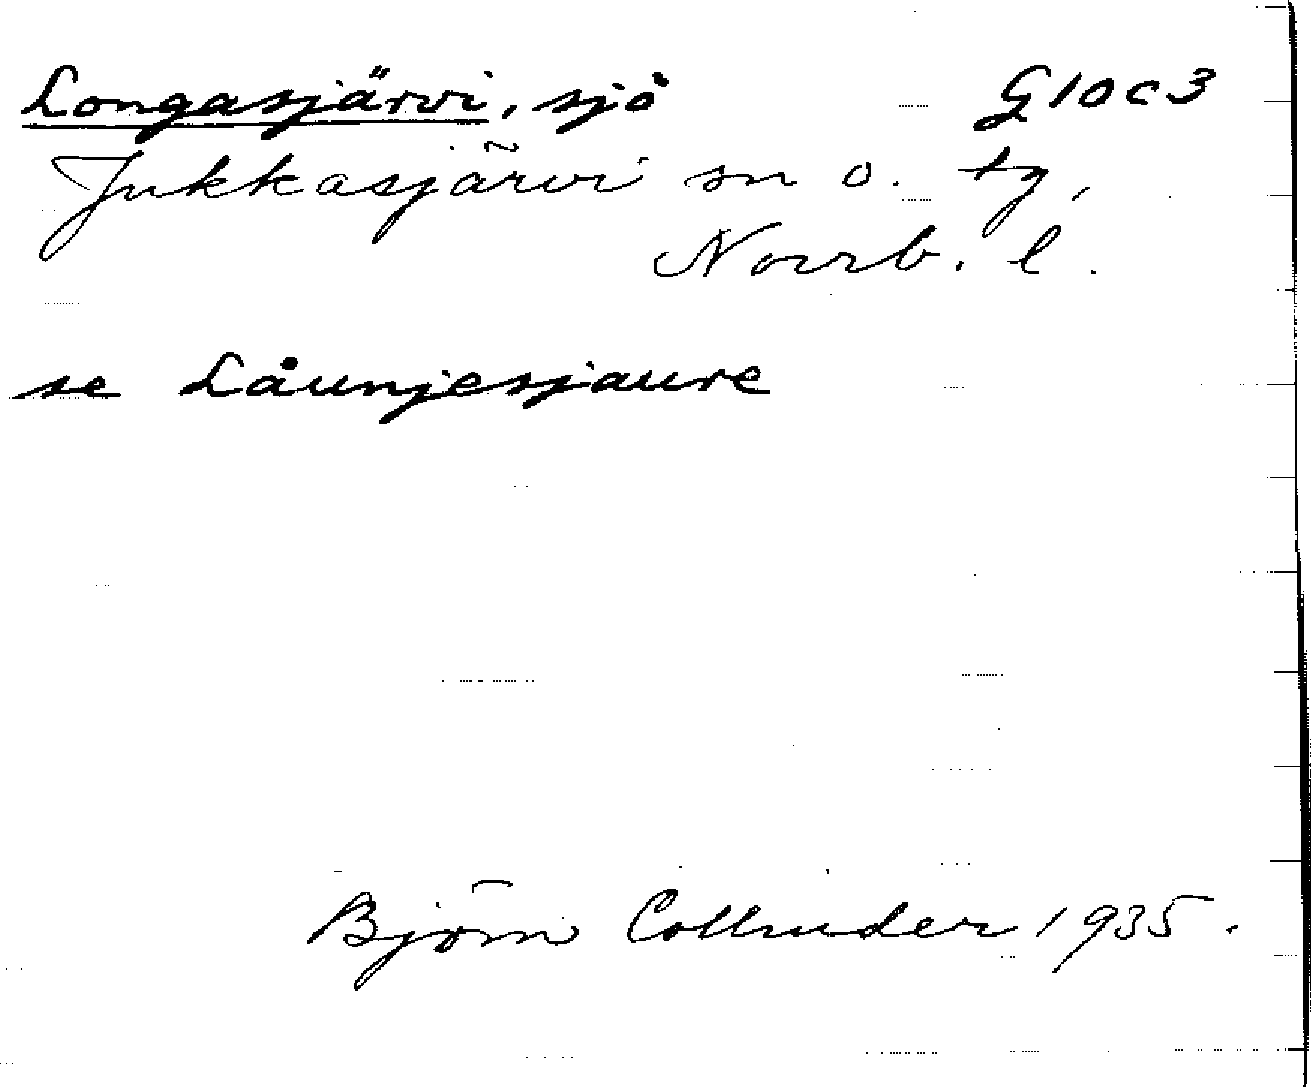 Longasjärvi, sjö G10c3
Jukkasjärvi sn o. tg,
Norrb. l.
se Låunjesjaure
Björn Collinder 1935.